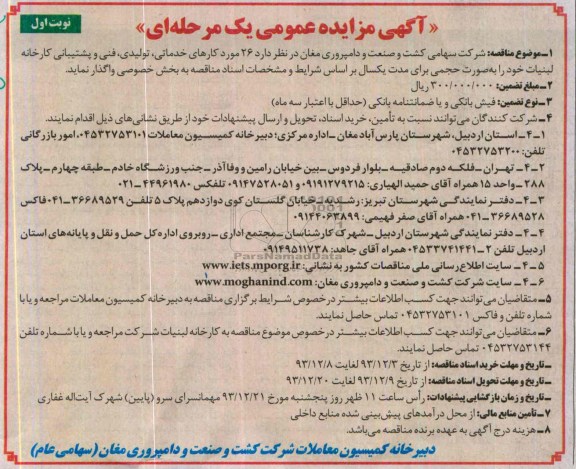 نوبت اول
«آگهی مزایده عمومی یک مرحله‌ای»
۱ــ موضوع مناقصه: شرکت سهامی کشت و صنعت و دامپروری مغان در نظر دارد ۲۶ مورد کارهای خدماتی، تولیدی، فنی و پشتیبانی کارخانه
لبنیات خود را به‌صورت حجمی برای مدت یکسال بر اساس شرایط و مشخصات اسناد مناقصه به بخش خصوصی واگذار نماید.
۲ــ مبلغ تضمین: ۳۰۰/۰۰۰/۰۰۰ ریال
۳ــ نوع تضمین: فیش بانکی و یا ضمانتنامه بانکی (حداقل با اعتبار سه ماه)
۴ــ شرکت کنندگان می‌توانند نسبت به تأمین، خرید اسناد، تحویل و ارسال پیشنهادات خود از طریق نشانی‌های ذیل اقدام نمایند.
۱ــ۴ــ استان اردبیل، شهرستان پارس‌آباد مغان ــ اداره مرکزی؛ دبیرخانه کمیسیون معاملات ۰۴۵۳۲۷۵۳۱۰۱، امور بازرگانی
تلفن: ۰۴۵۳۲۷۵۳۲۰۰
۲ــ۴ــ تهران ــ فلکه دوم صادقیه ــ بلوار فردوس ــ بین خیابان رامین و وفا آذر ــ جنب ورزشگاه خادم ــ طبقه چهارم ــ پلاک
۲۸۸ــ واحد ۱۵ همراه آقای حمید الهیاری: ۰۹۱۹۱۲۷۹۲۱۵ و ۰۹۱۴۷۵۲۸۰۵۱ تلفکس ۴۴۹۶۱۹۸۰ــ۰۲۱
۳ــ۴ــ دفتر نمایندگی شهرستان تبریز: رشدیه ــ خیابان گلستان کوی دوازدهم پلاک ۵ تلفن ۳۶۶۸۹۵۲۹ــ۰۴۱ فاکس
۳۶۶۸۹۵۲۸ــ۰۴۱ همراه آقای صفر فهیمی: ۰۹۱۴۴۰۶۳۸۹۹
۴ــ۴ــ دفتر نمایندگی شهرستان اردبیل ــ شهرک کارشناسان ــ مجتمع اداری ــ روبروی اداره کل حمل و نقل و پایانه‌های استان
اردبیل تلفن ۲ــ۰۴۵۳۳۷۴۱۴۴۱ همراه آقای جاهد: ۰۹۱۴۹۵۱۱۷۳۸
۵ــ۴ــ سایت اطلاع‌رسانی ملی مناقصات کشور به نشانی: www.iets.mporg.ir
۶ــ۴ــ سایت شرکت کشت و صنعت و دامپروری مغان: www.moghanind.com
۵ــ متقاضیان می‌توانند جهت کسب اطلاعات بیشتر درخصوص شرایط برگزاری مناقصه به دبیرخانه کمیسیون معاملات مراجعه و یا با
شماره تلفن و فاکس ۰۴۵۳۲۷۵۳۱۰۱ تماس حاصل نمایند.
۶ــ متقاضیان می‌توانند جهت کسب اطلاعات بیشتر درخصوص موضوع مناقصه به کارخانه لبنیات شرکت مراجعه و یا با شماره تلفن
۰۴۵۳۲۷۵۳۱۴۴ تماس حاصل نمایند.
ــ تاریخ و مهلت خرید اسناد مناقصه: از تاریخ ۹۳/۱۲/۳ لغایت ۹۳/۱۲/۸
ــ تاریخ و مهلت تحویل اسناد مناقصه: از تاریخ ۹۳/۱۲/۹ لغایت ۹۳/۱۲/۲۰
ــ تاریخ و زمان بازگشایی پیشنهادات: رأس ساعت ۱۱ ظهر روز پنجشنبه مورخ ۹۳/۱۲/۲۱ مهمانسرای سرو (پایین) شهرک آیت‌اله غفاری
۷ــ تأمین منابع مالی: از محل درآمدهای پیش‌بینی شده منابع داخلی
۸ــ هزینه درج آگهی به عهده برنده مناقصه می‌باشد.
دبیرخانه کمیسیون معاملات شرکت کشت و صنعت و دامپروری مغان (سهامی عام)